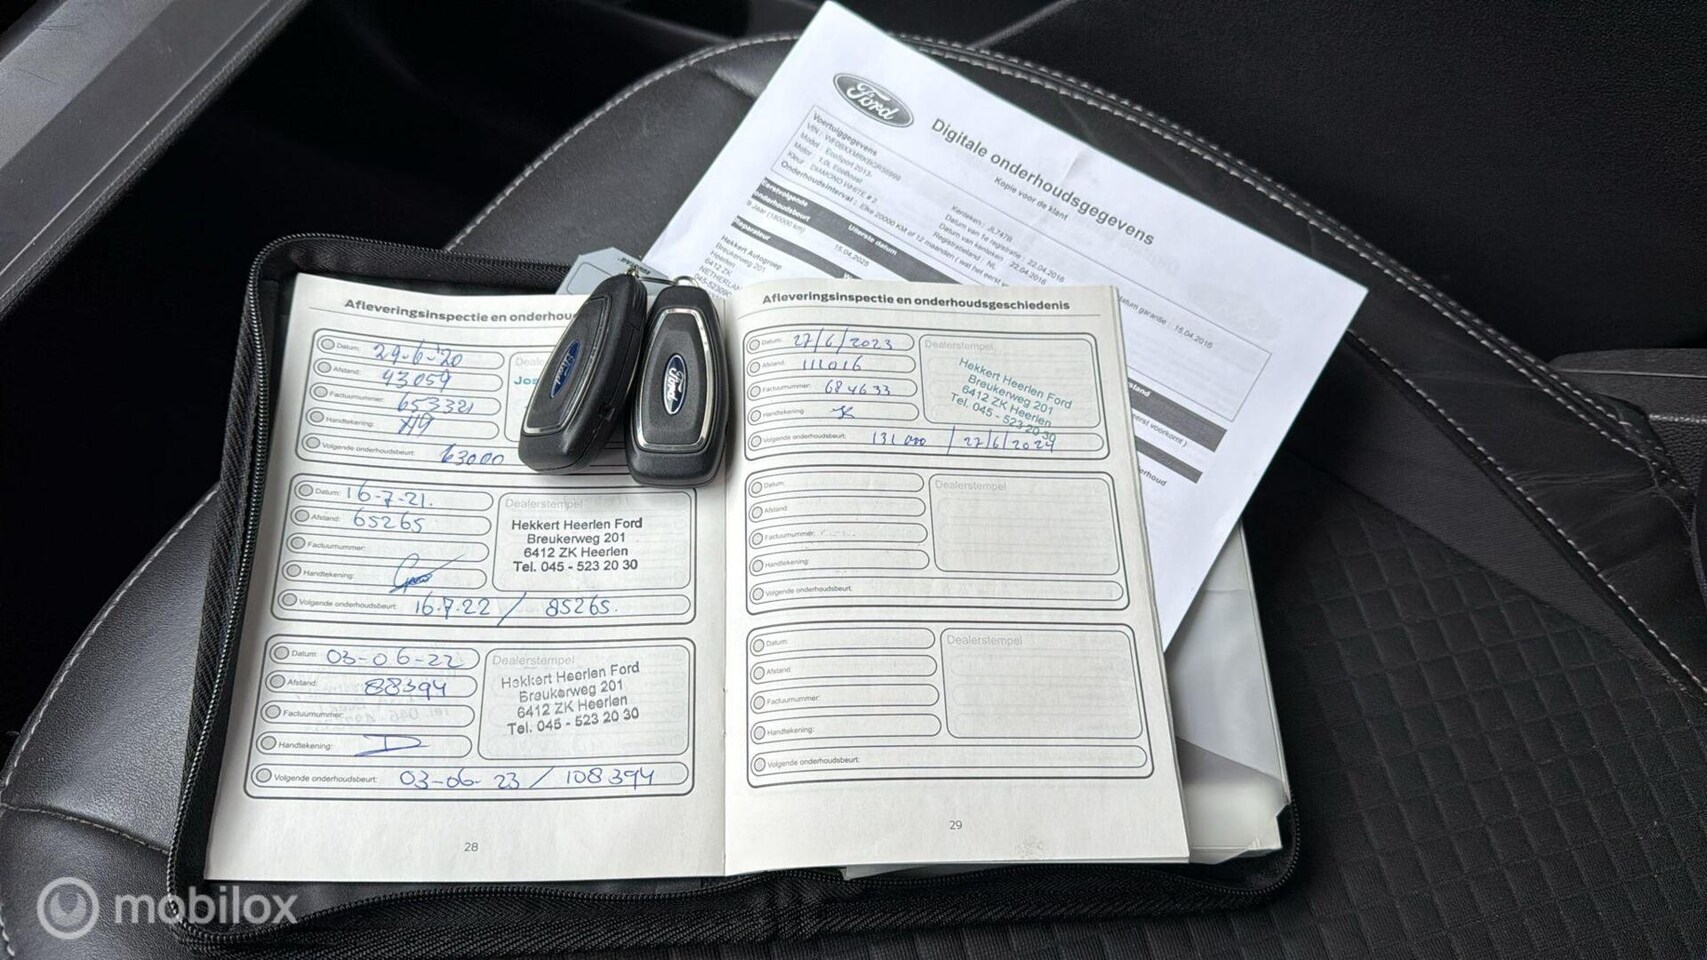 Ford
Digitale onderhoudsgegevens
Kopie voor de klant
Voertuiggegevens
Model : EcoSport 2013-
Motor : 1.0L EcoBoost
Kleur : DIAMOND WHITE # 2
Onderhoudsinterval : Elke 20000 KM of 12 maanden ( wat het eerst
Kenteken : JL747B
Datum van 1e registratie : 22.04.2016
Datum van kenteken : 22.04.2016
Registratieland : NL
datum garantie : 15.04.2016
Eerstvolgende
onderhoudsbeurt
Uiterste datum
9 Jaar (180000 km)
15.04.2025
Reparateur
Hekkert Autogroep
Breukerweg 201
Heerlen
6412 ZK
Afleveringsinspectie en onderhou
Datum: 29-6-'20
Afstand: 43059
Factuurnummer: 653321
Handtekening:
Volgende onderhoudsbeurt: 63000
Ford
Ford
Datum: 16-7-21.
Afstand: 65265
Factuurnummer:
Handtekening:
Volgende onderhoudsbeurt: 16.7.22 / 85265.
Dealerstempel
Hekkert Heerlen Ford
Breukerweg 201
6412 ZK Heerlen
Tel. 045 - 523 20 30
Datum: 03-06-22
Afstand: 88394
Factuurnummer:
Handtekening:
Volgende onderhoudsbeurt: 03-06-23 / 108394
Dealerstempel
Hekkert Heerlen Ford
Breukerweg 201
6412 ZK Heerlen
Tel. 045 - 523 20 30
28
Afleveringsinspectie en onderhoudsgeschiedenis
Datum: 27/6/2023
Afstand: 111016
Factuurnummer: 684633
Handtekening:
Volgende onderhoudsbeurt: 131000 / 27/6/2024
Dealerstempel
Hekkert Heerlen Ford
Breukerweg 201
6412 ZK Heerlen
Tel. 045 - 523 20 30
Datum:
Afstand:
Factuurnummer:
Handtekening:
Volgende onderhoudsbeurt:
Dealerstempel
Datum:
Afstand:
Factuurnummer:
Handtekening:
Volgende onderhoudsbeurt:
Dealerstempel
29
mobilox